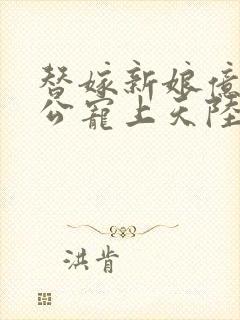 替嫁新娘億
公寵上天陸
洪肯